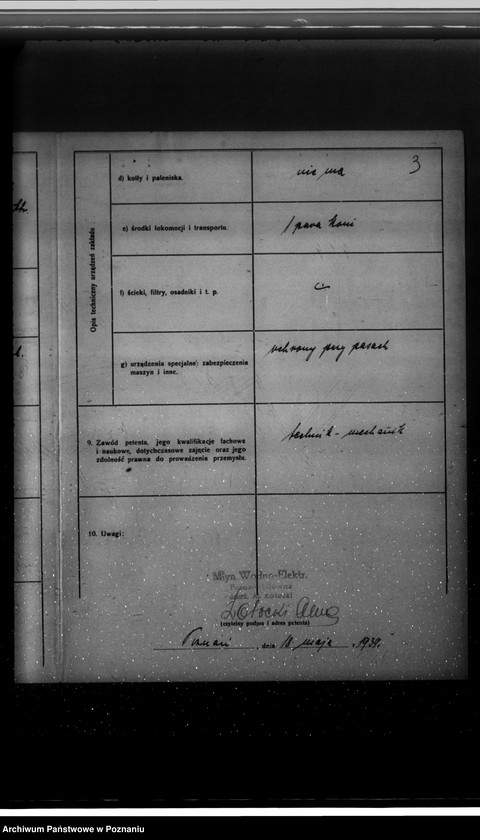 3
Opis techniczny urządzeń zakładu
d) kotły i paleniska.
nie ma
e) środki lokomocji i transportu.
1 para koni
f) ścieki, filtry, osadniki i t. p.
g) urządzenia specjalne: zabezpieczenia
maszyn i inne.
ochrony przy pasach
9. Zawód petenta, jego kwalifikacje fachowe
i naukowe, dotychczasowe zajęcie oraz jego
zdolność prawna do prowadzenia przemysłu.
technik - mechanik
10. Uwagi:
Młyn Wodno-Elektr.
(czytelny podpis i adres petenta)
Poznań, dnia 10 maja 1939.
Archiwum Państwowe w Poznaniu